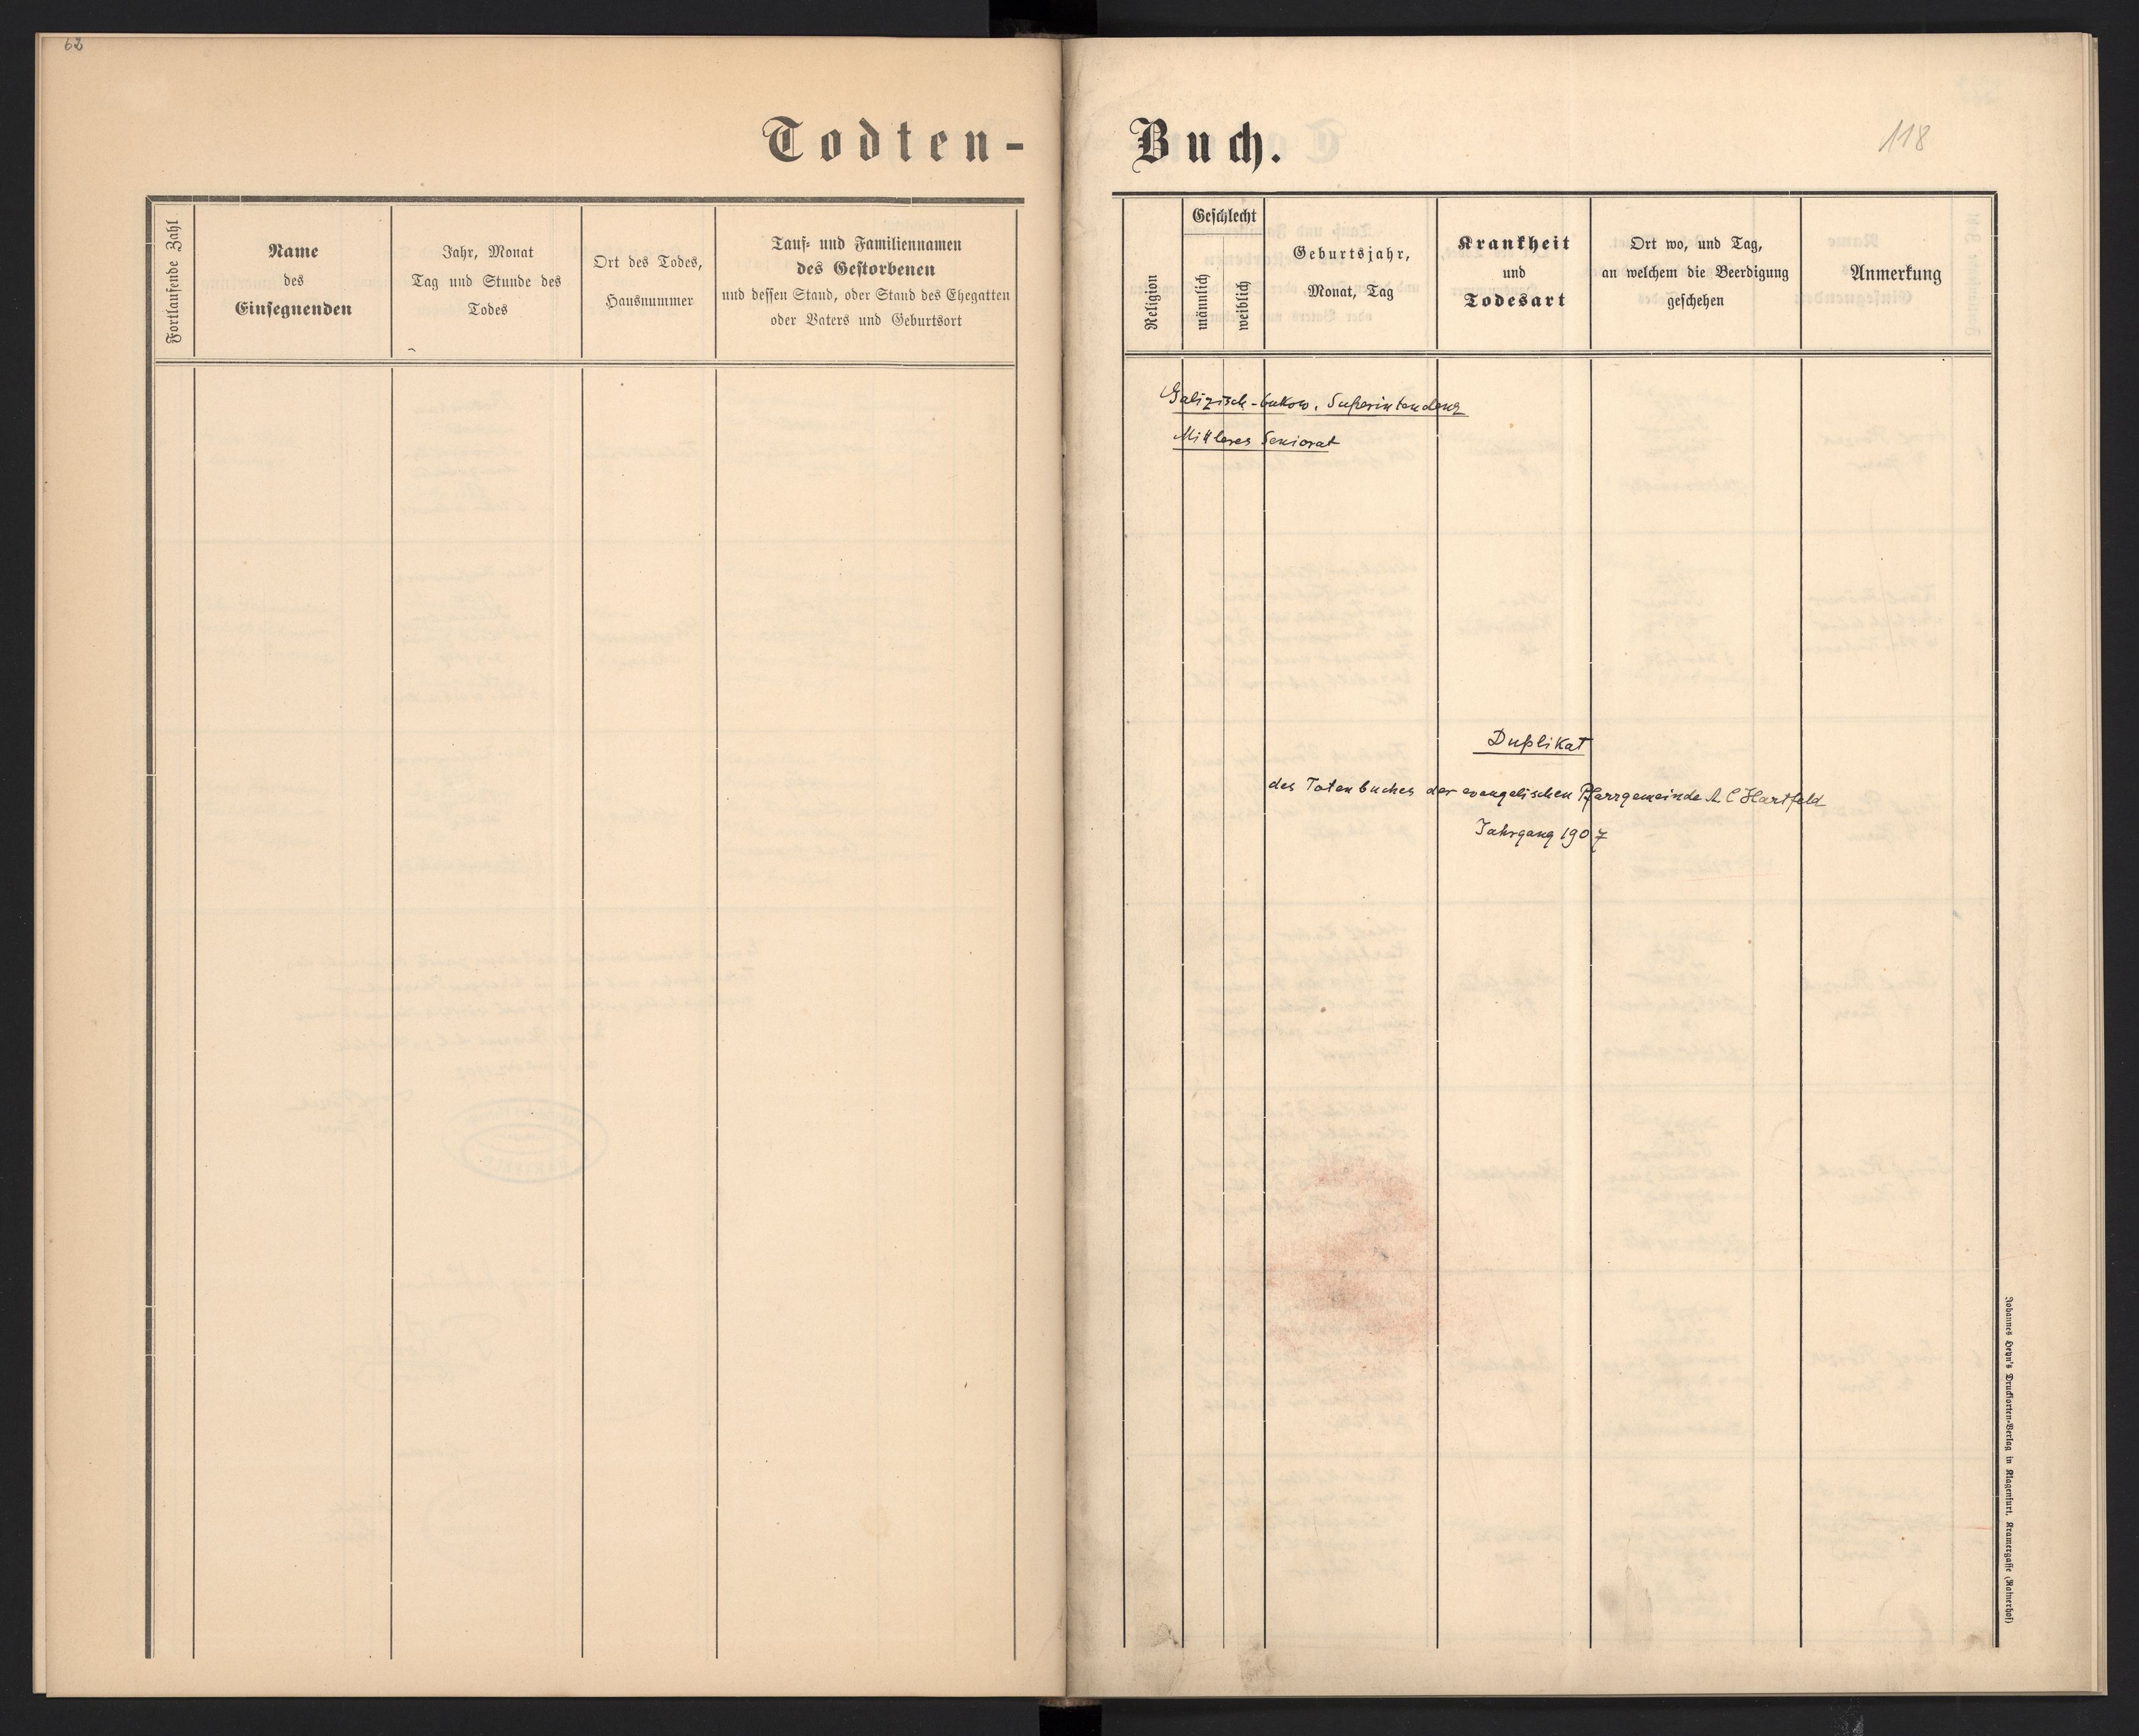 62
Todten-
Fortlaufende Zahl
Name
des
Einsegnenden
Jahr, Monat
Tag und Stunde des
Todes
Ort des Todes,
Hausnummer
Tauf- und Familiennamen
des Gestorbenen
und dessen Stand, oder Stand des Ehegatten
oder Vaters und Geburtsort
Buch.
118
Religion
Geschlecht
männlich
weiblich
Geburtsjahr,
Monat, Tag
Krankheit
und
Todesart
Ort wo, und Tag,
an welchem die Beerdigung
geschehen
Anmerkung
Galizisch-bukow. Superintendenz
Mittleres Seniorat
Duplikat
des Totenbuches der evangelischen Pfarrgemeinde A C Hartfeld
Jahrgang 1907
Johannes Heyn's Drucksorten-Verlag in Klagenfurt, Kramergasse (Rainerhof)